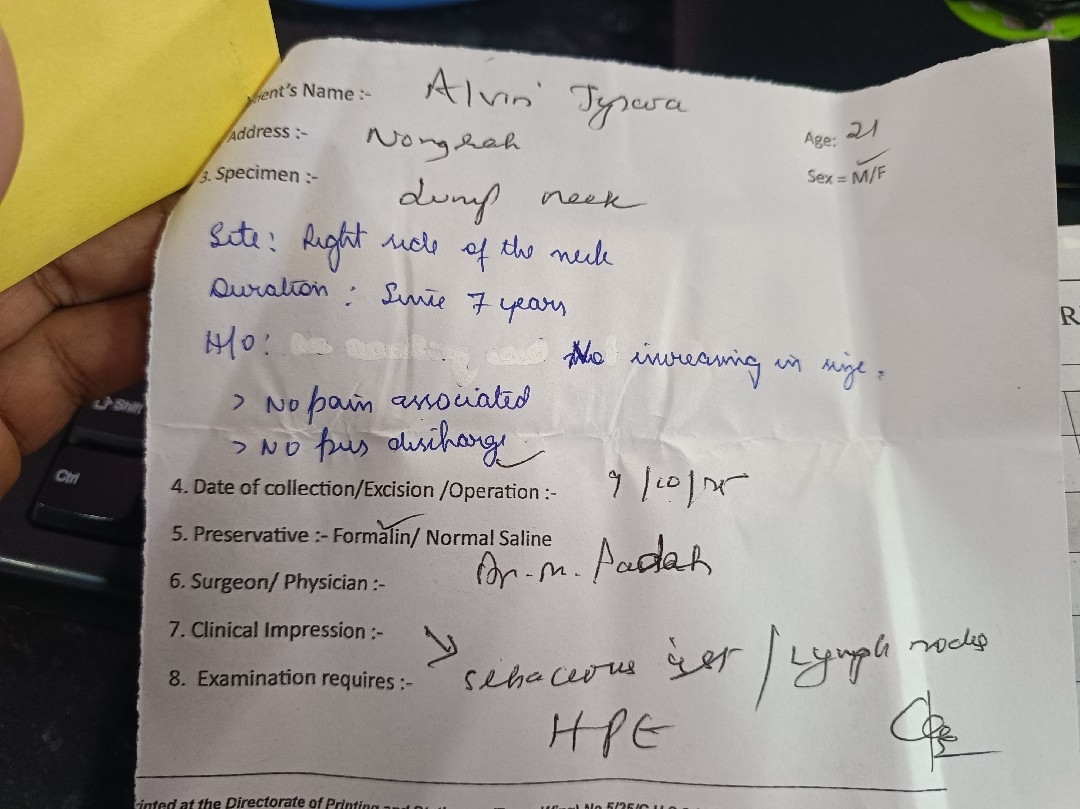 ient's Name :- Alvin Tyrsara
Address :- Nongrah
Age: 21
Sex = M/F
3. Specimen :- Lump neck
Site: Right side of the neck
Duration : Since 7 years
H/O: No increasing in size.
> No pain associated
> No pus discharge
4. Date of collection/Excision /Operation :- 9/10/25
5. Preservative :- Formalin/ Normal Saline
6. Surgeon/ Physician :- Dr. M. Padah
7. Clinical Impression :-
sebaceous cyst / Lymph nodes
8. Examination requires :-
HPE
Printed at the Directorate of Printing and